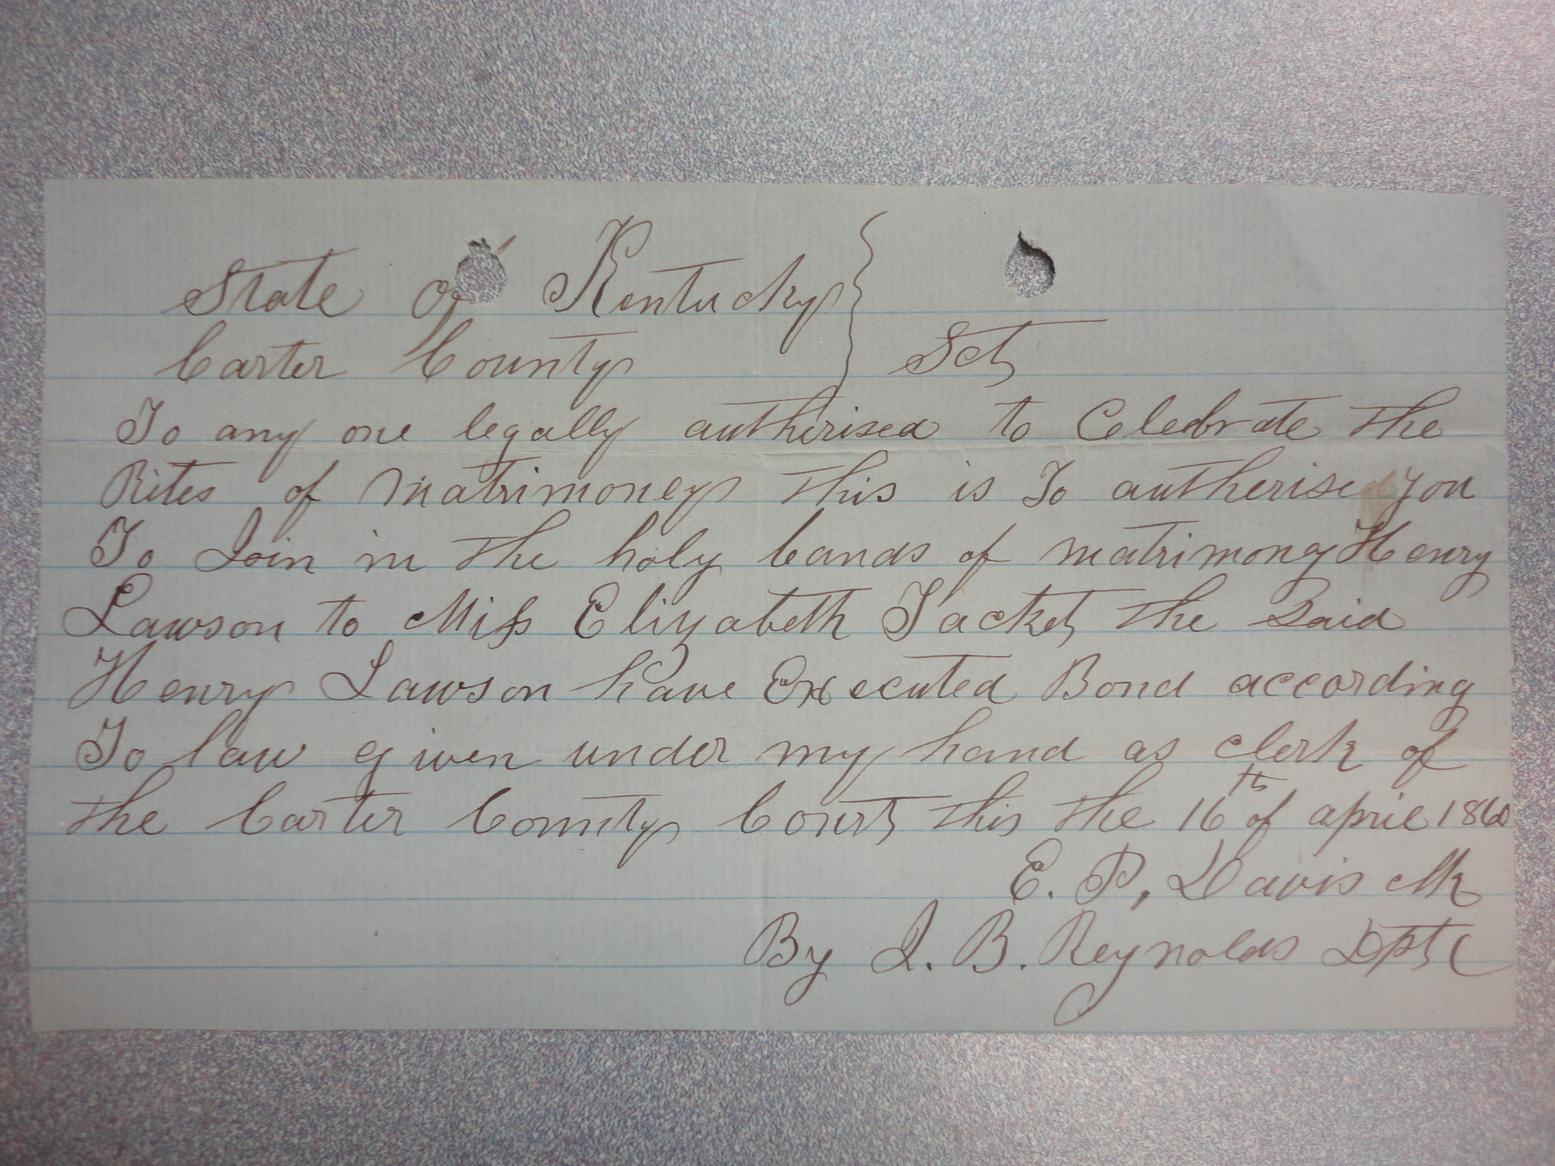 State of Kentucky }
Carter County } Sct
To any one legally autherised to Celebrate the
Rites of Matrimoney this is To autherise you
To Join in the holy bands of matrimony Henry
Lawson to Miss Elizabeth Jacket the Said
Henry Lawson have Executed Bond according
To law given under my hand as clerk of
the Carter County Court this the 16th of april 1860
E. P, Davis Clk
By J. B. Reynolds Dpt C